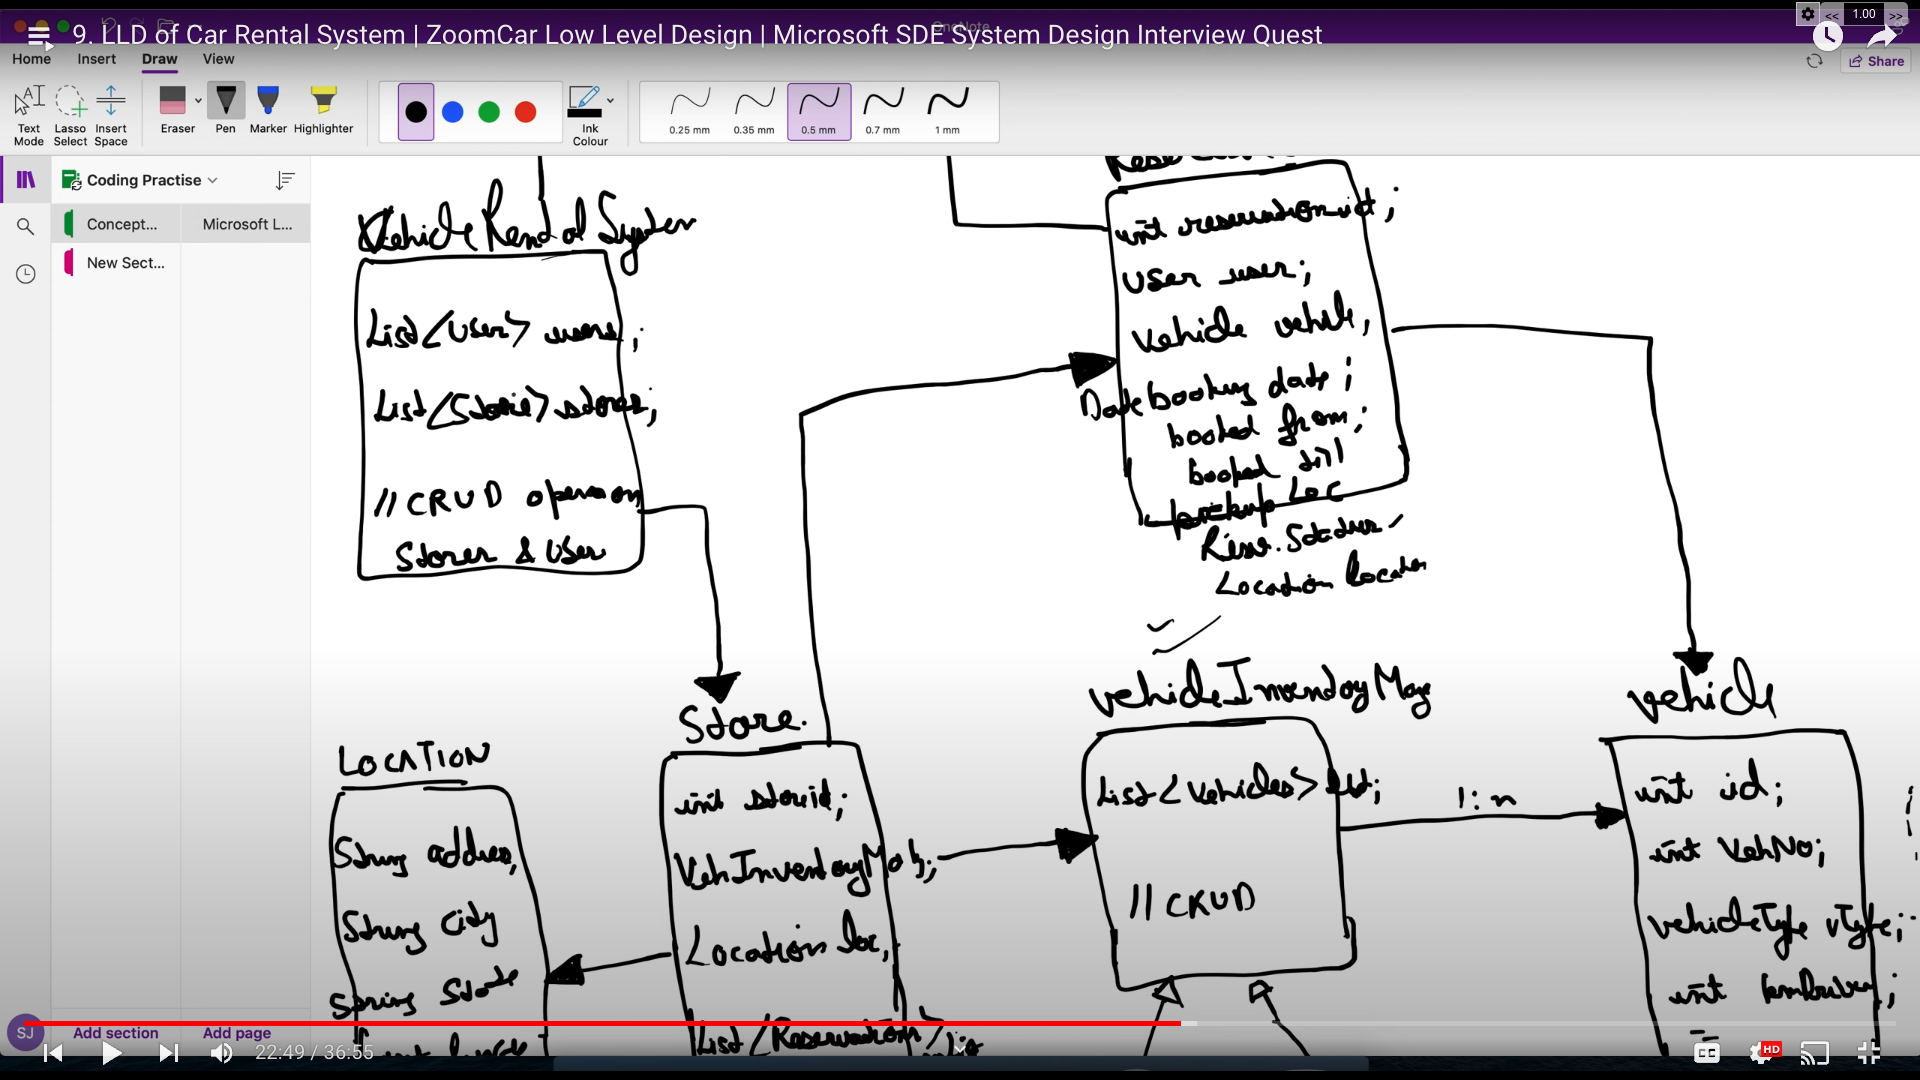 9. LLD of Car Rental System | ZoomCar Low Level Design | Microsoft SDE System Design Interview Quest
OneNote
<< 1.00 >>
Home Insert Draw View
Share
Text Mode
Lasso Select
Insert Space
Eraser
Pen
Marker
Highlighter
Ink Colour
0.25 mm
0.35 mm
0.5 mm
0.7 mm
1 mm
Coding Practise
Concept...
Microsoft L...
New Sect...
Vehicle Rental System
List<User> users;
List<Store> stores;
// CRUD operation
Stores & User
int reservation id;
User user;
Vehicle vehicle;
Date booking date;
booked from;
booked till
pickup Loc
Resv. Status
Location Location
Store
int storeid;
VehInventoryMgt;
Location loc;
List<Reservation>
LOCATION
String address,
String City
String State
vehicleInventoryMag
List<Vehicles> list;
// CRUD
1:n
vehicle
int id;
int VehNo;
vehicleType vType;
int kmDriven;
SJ
Add section
Add page
22:49 / 36:55
CC
HD